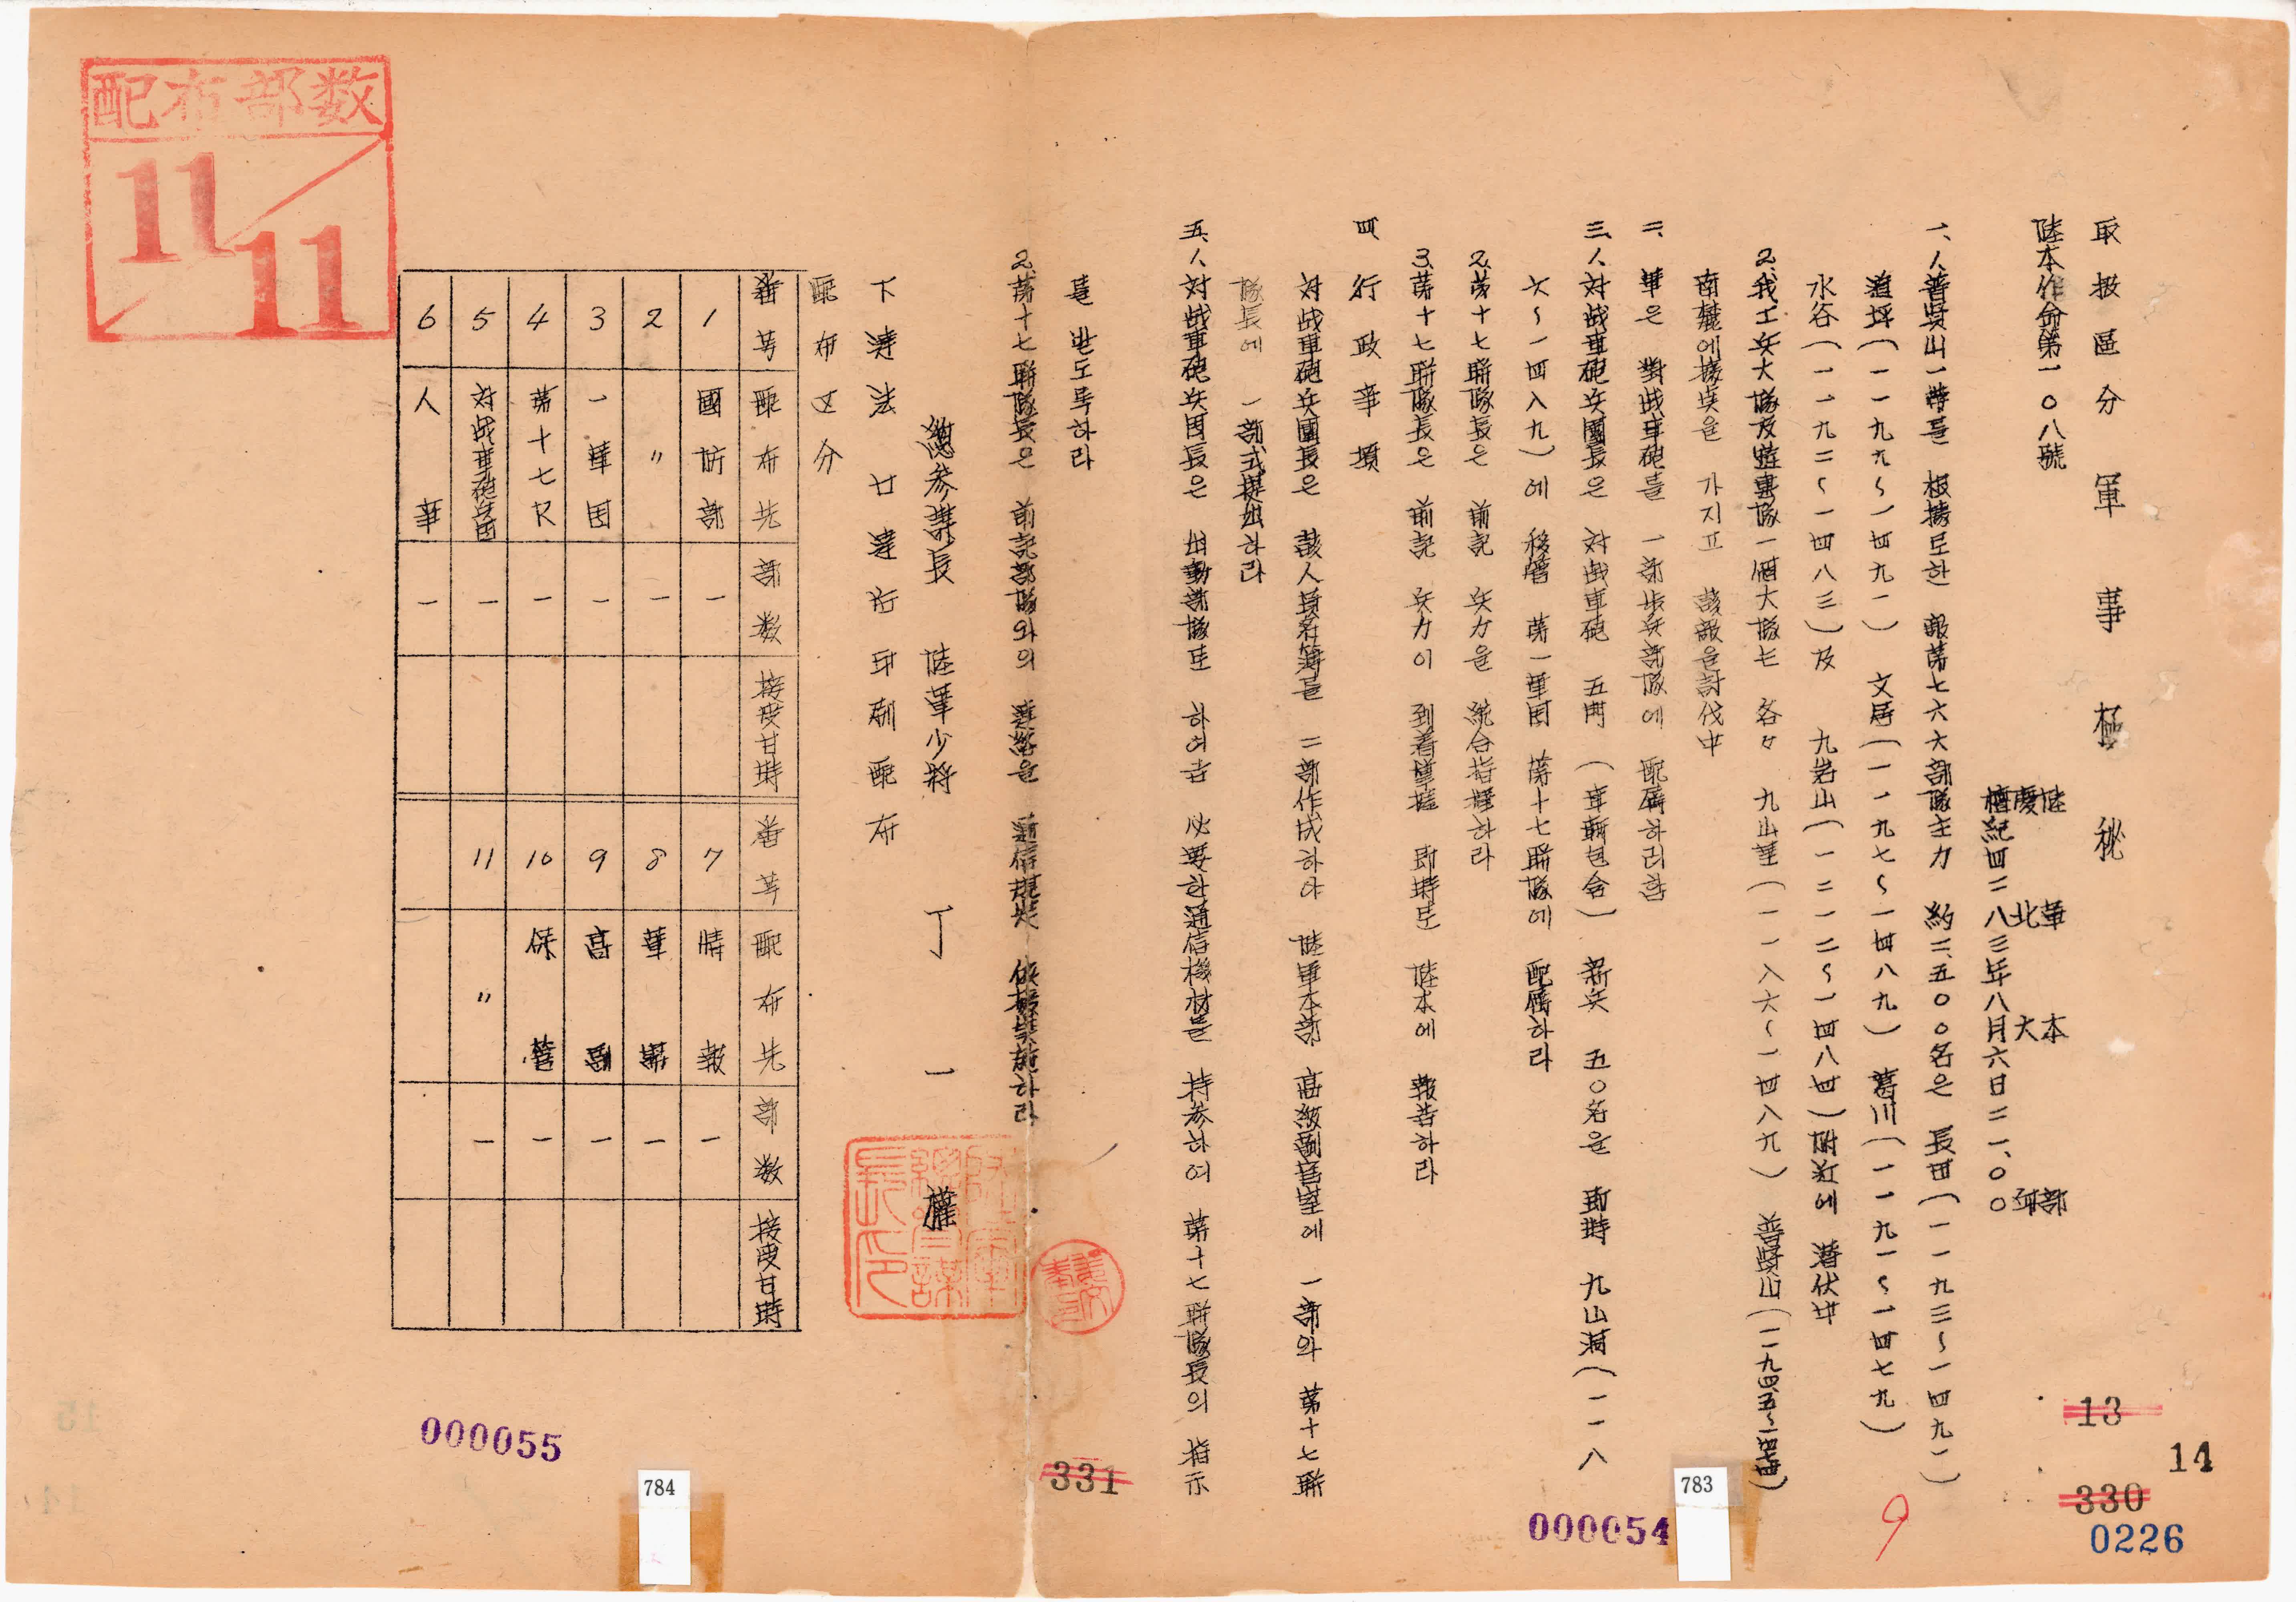 取扱區分 軍事極秘
陸本作命第一〇八號
陸軍本部
慶北大邱
檀紀四二八三年八月六日二一、〇〇
一、1.普賢山一帶를 根據로한 敵第七六六部隊主力 約二、五〇〇名은 長田(一一九三~一四九一)
道坪(一一九九~一四九一) 文居(一一九七~一四八九) 葛川(一一九一~一四七九)
水谷(一一九二~一四八三)及 九岩山(一二一二~一四八四)附近에 潛伏中
2.我工兵大隊及陸軍隊一個大隊는 各々 九山里(一一八六~一四八九) 普賢山(一一九四、五~一四七四)
南麓에據點을 가지고 該敵을討伐中
二、軍은 對战車砲를 一部步兵部隊에 配屬하려함
三、1.対战車砲兵團長은 対战車砲 五門 (車輛包含) 新兵 五〇名을 卽時 九山洞(一一八
六~一四八九)에 移營 第一軍团 第十七聯隊에 配屬하라
2.第十七聯隊長은 前記 兵力을 統合指揮하라
3.第十七聯隊長은 前記 兵力이 到着掌握 卽時로 陸本에 報告하라
四 行政事項
対战車砲兵團長은 該人員名簿를 二部作成하야 陸軍本部 高級副官室에 一部와 第十七聯
隊長에 一部式提出하라
五、1.対战車砲兵团長은 出動部隊로 하여금 必要한通信機材를 持參하여 第十七聯隊長의 指示
를 받도록하라
2.第十七聯隊長은 前記部隊와의 連絡을 通信規定 依據實施하라
總參謀長 陸軍少將 丁一權
下達法 廿達后印刷配布
配布区分
番号 配布先 部数 接受日時 番号 配布先 部数 接受日時
1 國防部 一 7 情報 一
2 〃 一 8 軍需 一
3 一軍团 一 9 高副 一
4 第十七R 一 10 保管 一
5 対战車砲兵团 一 11 〃 一
6 人事 一
配布部数
11/11
陸軍總參謀長印
000055
784
331
000054
783
9
13
14
330
0226